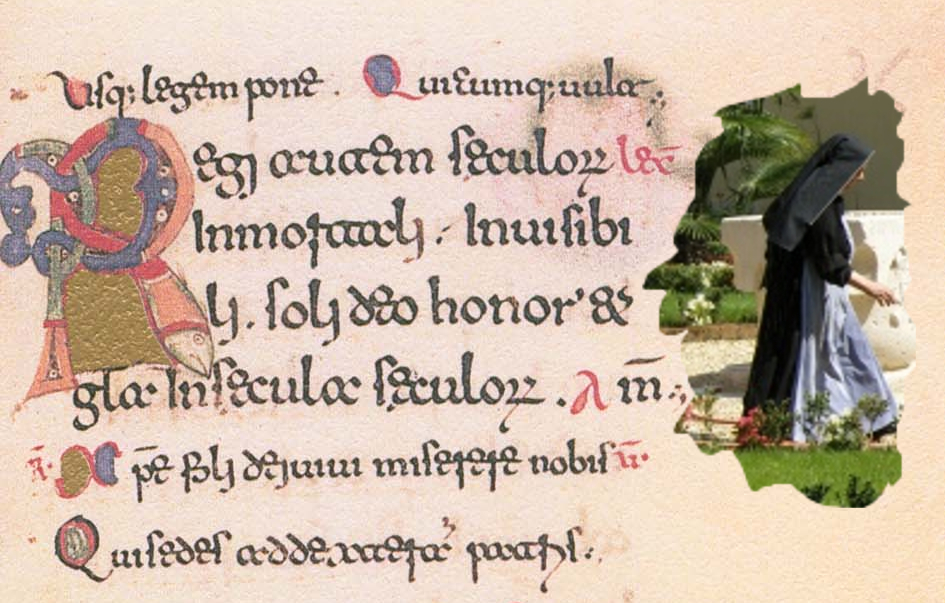 Usq; legem pone . Quicumq; uult .;
Regi autem seculoꝝ lec̄
Inmortali . Inuisibi
li . soli deo honor' &
gła In secula seculoꝝ . A m̄ .;
℟. Xp̄e fili dei uiui miserere nobis ℟.
Qui sedes ad dexterā patris .